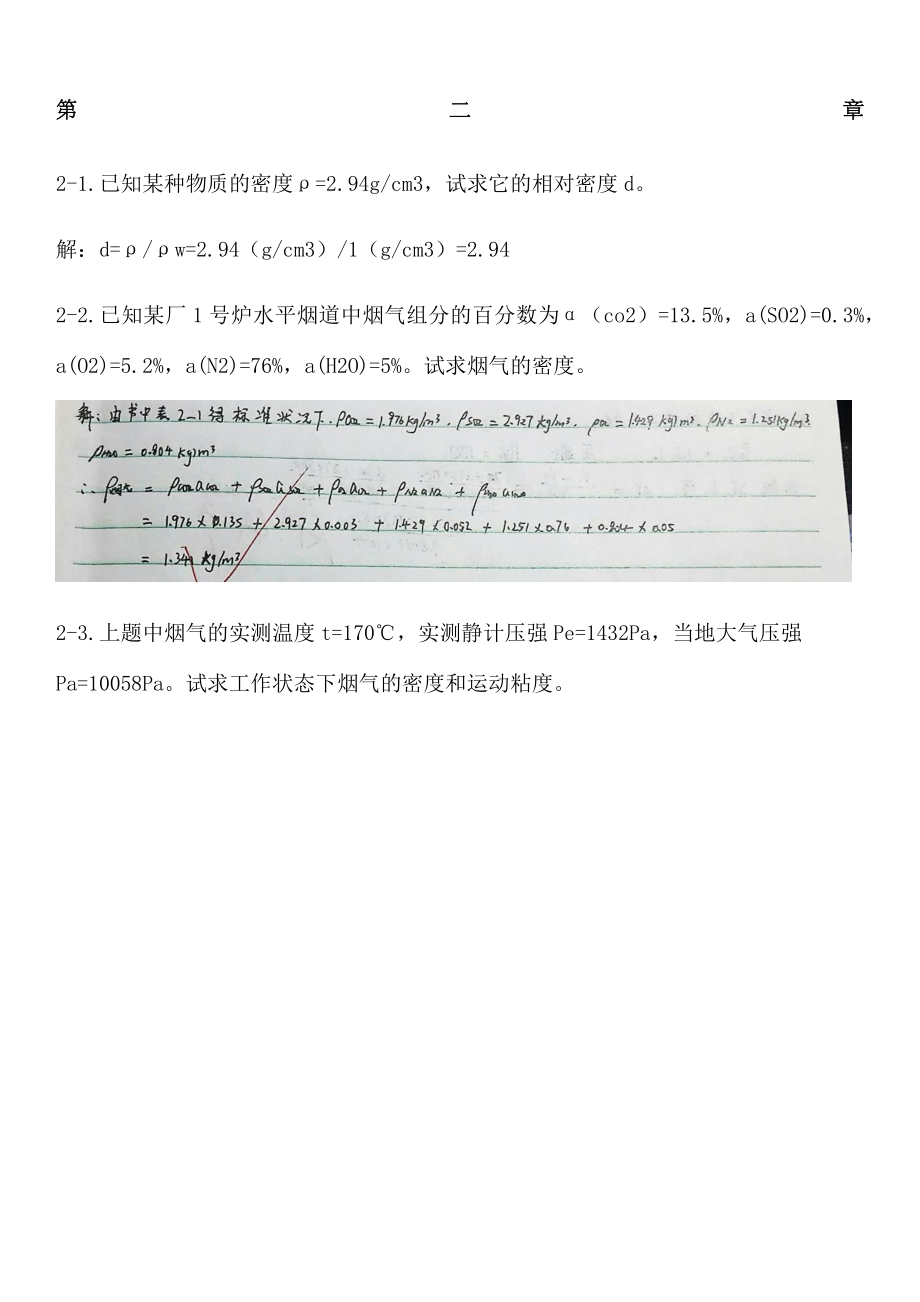 第二章
2-1.已知某种物质的密度ρ=2.94g/cm3，试求它的相对密度d。
解：d=ρ/ρw=2.94（g/cm3）/1（g/cm3）=2.94
2-2.已知某厂1号炉水平烟道中烟气组分的百分数为α（co2）=13.5%，a(SO2)=0.3%，
a(O2)=5.2%，a(N2)=76%，a(H2O)=5%。试求烟气的密度。
解：由书中表2-1得标准状况下.ρCO2=1.976kg/m³，ρSO2=2.927kg/m³，ρO2=1.429kg/m³.ρN2=1.251kg/m³.
ρH2O=0.804kg/m³
∴ρ烟气=ρCO2aCO2+ρSO2aSO2+ρO2aO2+ρN2aN2+ρH2OaH2O
=1.976×0.135+2.927×0.003+1.429×0.052+1.251×0.76+0.804×0.05
=1.341kg/m³
2-3.上题中烟气的实测温度t=170℃，实测静计压强Pe=1432Pa，当地大气压强
Pa=10058Pa。试求工作状态下烟气的密度和运动粘度。